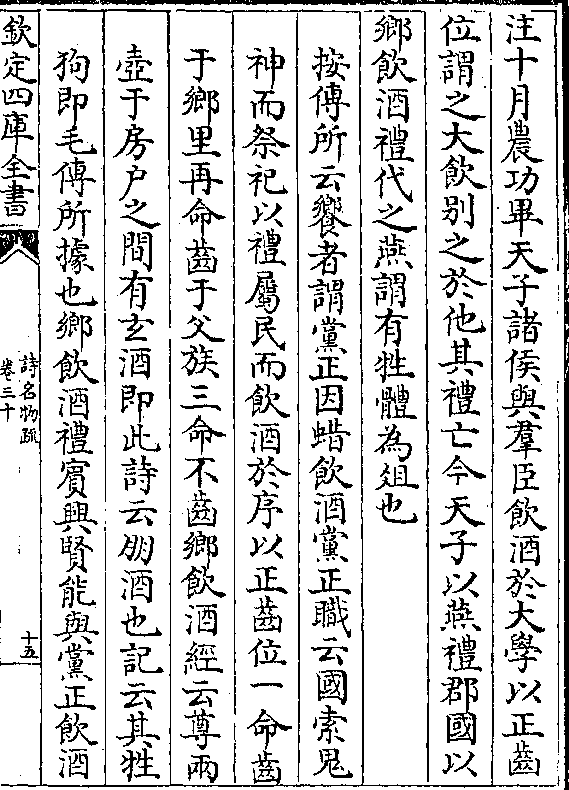 注十月農功畢天子諸侯與羣臣飲酒於大學以正齒
位謂之大飲别之於他其禮亡今天子以燕禮郡國以
鄉飲酒禮代之燕謂有牲體為俎也
按傳所云饗者謂黨正因蜡飲酒黨正職云國索鬼
神而祭祀以禮屬民而飲酒於序以正齒位一命齒
于鄉里再命齒于父族三命不齒鄉飲酒經云尊兩
壺于房户之間有玄酒即此詩云朋酒也記云其牲
狗即毛傳所據也鄉飲酒禮賓興賢能與黨正飲酒
欽定四庫全書
詩名物疏
卷三十
十五